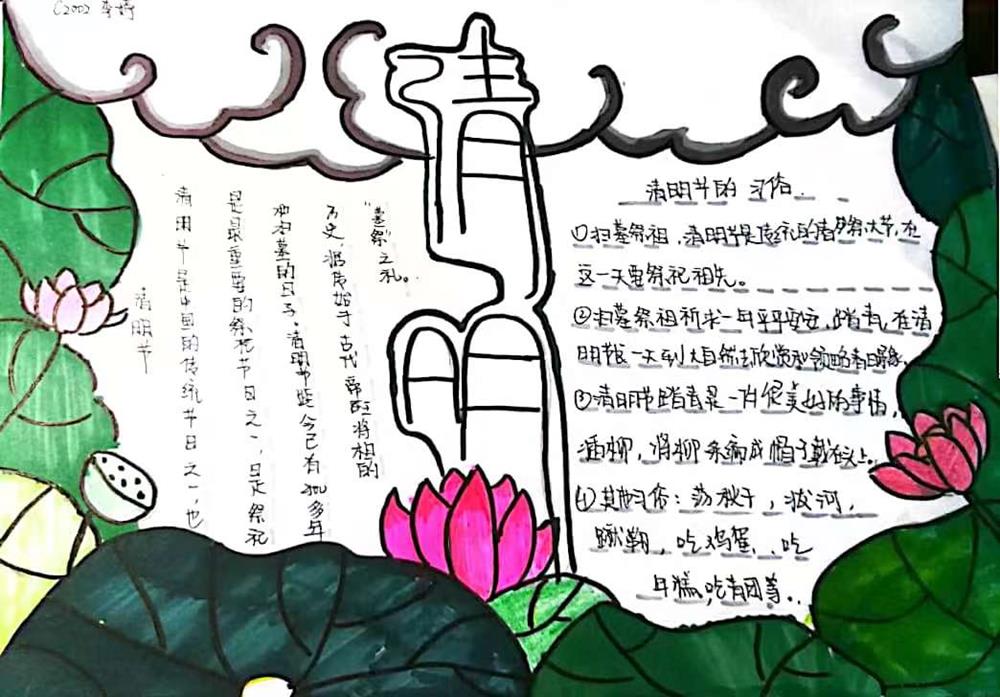 C2002 李婷
清明
清明节
清明节是中国的传统节日之一，也
是最重要的祭祀节日之一，是祭祀
和扫墓的日子。清明节距今已有多年
历史，源始于古代帝王将相的
“墓祭”之礼。
清明节的习俗.
①扫墓祭祖，清明节是传统的春祭大节，在
这一天要祭祀祖先。
②扫墓祭祖祈求一年平平安安，踏青，在清
明节一天到大自然去欣赏和领略春日景象
③清明节踏青是一件很美好的事情，
插柳，将柳条编成帽子戴在头上。
④其他习俗：荡秋千，拔河，
蹴鞠，吃鸡蛋、吃
年糕，吃青团等..